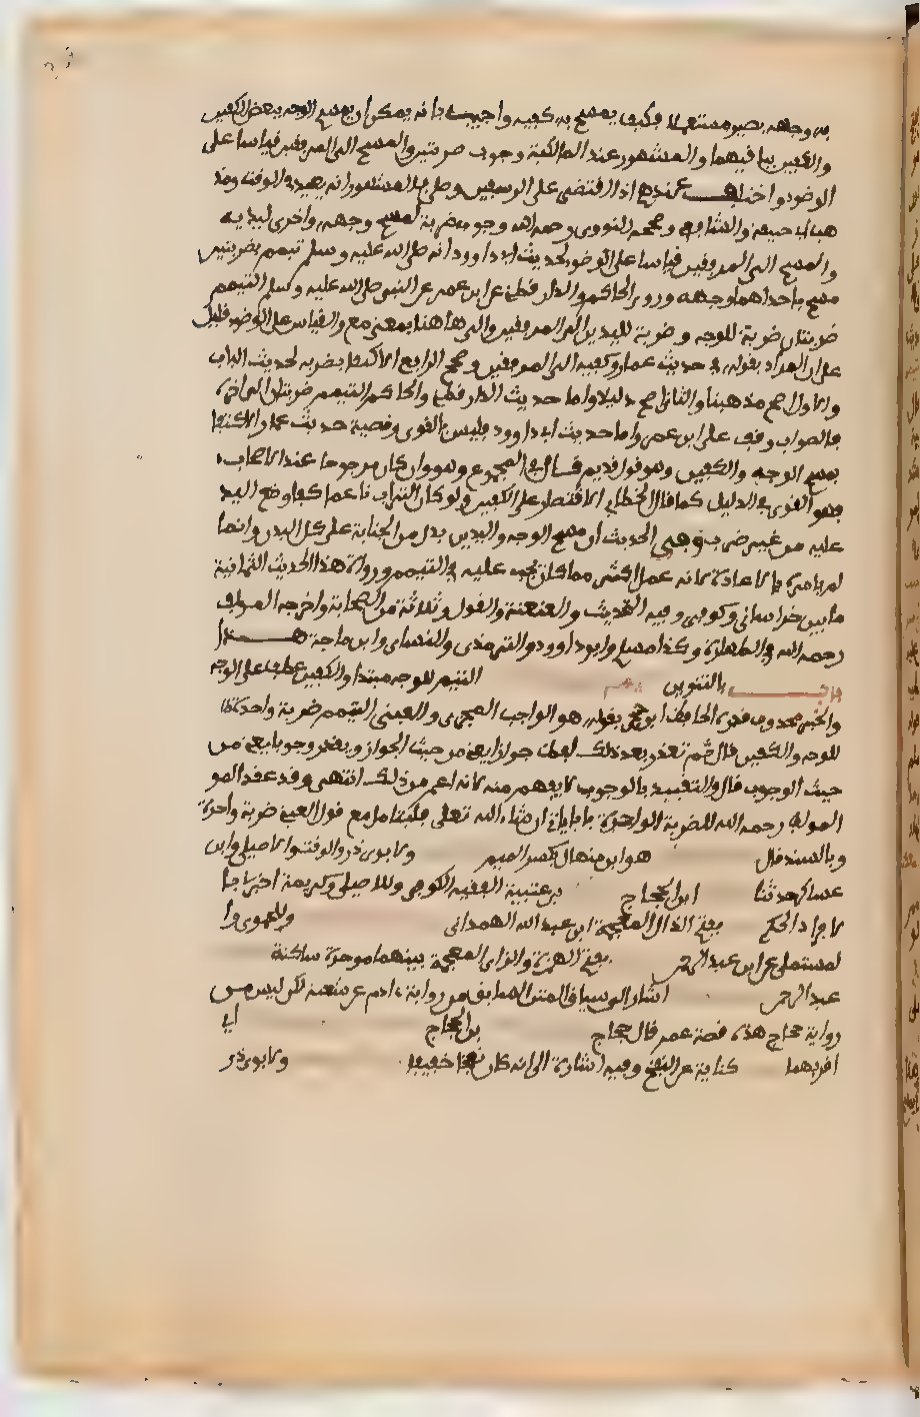 به وجهه يصير مستعملا فكيف يمسح به كفيه واجيب بانه يمكن ان يمسح الوجه ببعض الكفين
والكفين بباقيهما والمشهور عند المالكية وجوب ضربتين والمسح الى المرفقين قياسا على
الوضوء واختلف عندهم اذا اقتصر على الرسغين وصلى فالمشهور انه يعيد في الوقت ومذ
هب ابي حنيفة والشافعي وصححه النووي رحمه الله وجوب ضربة لمسح وجهه واخرى ليديه
والمسح الى المرفقين قياسا على الوضوء لحديث ابي داوود انه صلى الله عليه وسلم تيمم بضربتين
مسح باحداهما وجهه وروى الحاكم والدارقطني عن ابن عمر عن النبي صلى الله عليه وسلم التيمم
ضربتان ضربة للوجه وضربة لليدين الى المرفقين والى هاهنا بمعنى مع والقياس على الوضوء دليل
على ان المراد بقوله في حديث عمار وكفيه الى المرفقين وصحح الرافعي الاكتفا بضربه لحديث الباب
والاول اصح مذهبا والثاني اصح دليلا واما حديث الدارقطني والحاكم التيمم ضربتان الى اخره
فالصواب وقفه على ابن عمر واما حديث ابي داوود فليس بالقوي وقضية حديث عمار الاكتفا
بمسح الوجه والكفين وهو قول قديم قال في المجموع وهو وان كان مرجوحا عند الاصحاب
فهو القوي في الدليل كما قال الخطابي الاقتصار على الكفين ولو كان التراب ناعما كفا وضع اليد
عليه من غير ضرب وفي الحديث ان مسح الوجه واليدين بدل من الجنابة على كل البدن وانما
لم يامره بالاعادة لانه عمل اكثر مما كان يجب عليه في التيمم ورواة هذا الحديث الثمانية
ما بين خراساني وكوفي وفيه التحديث والعنعنة والقول وثلاثة من الصحابة واخرجه المولف
رحمه الله في الطهارة وكذا مسلم وابو داوود والترمذي والنساي وابن ماجة هذا
باب بالتنوين التيمم للوجه مبتدا والكفين عطف على الوجه
والخبر محذوف قدره الحافظ ابن حجر بقوله هو الواجب المجزئ والعيني التيمم ضربة واحدة
للوجه والكفين قال ثم تقدر بعد ذلك لفظ جوازا يعني من حيث الجواز ويقدر وجوبا يعني من
حيث الوجوب قال والتقييد بالوجوب لا يفهم منه لانه اعم من ذلك انتهى وقد عقد المو
المولف رحمه الله للضربة الواحدة بابا ياتي ان شاء الله تعالى فليتامل مع قول العيني ضربة واحدة
وبالسند قال هو ابن منهال بكسر الميم ولابوي ذر والوقت والاصيلي وابن
عساكر حدثنا ابن الحجاج بن عتيبة الفقيه الكوفي وللاصيلي وكريمة اخبرنا
بالافراد الحكم بفتح الذال المعجمة ابن عبد الله الهمداني وللحموي وا
لمستملي عن ابن عبد الرحمن بفتح الهمزة والزاي المعجمة بينهما موحدة ساكنة
عبد الرحمن اشار الى سياق المتن السابق من رواية ادم عن شعبة لكن ليس من
رواية حجاج هذه قصة عمر قال حجاج بن الحجاج اي
اقربهما كناية عن النفخ وفيه اشارة الى انه كان نفخا خفيفا ولابوي ذر